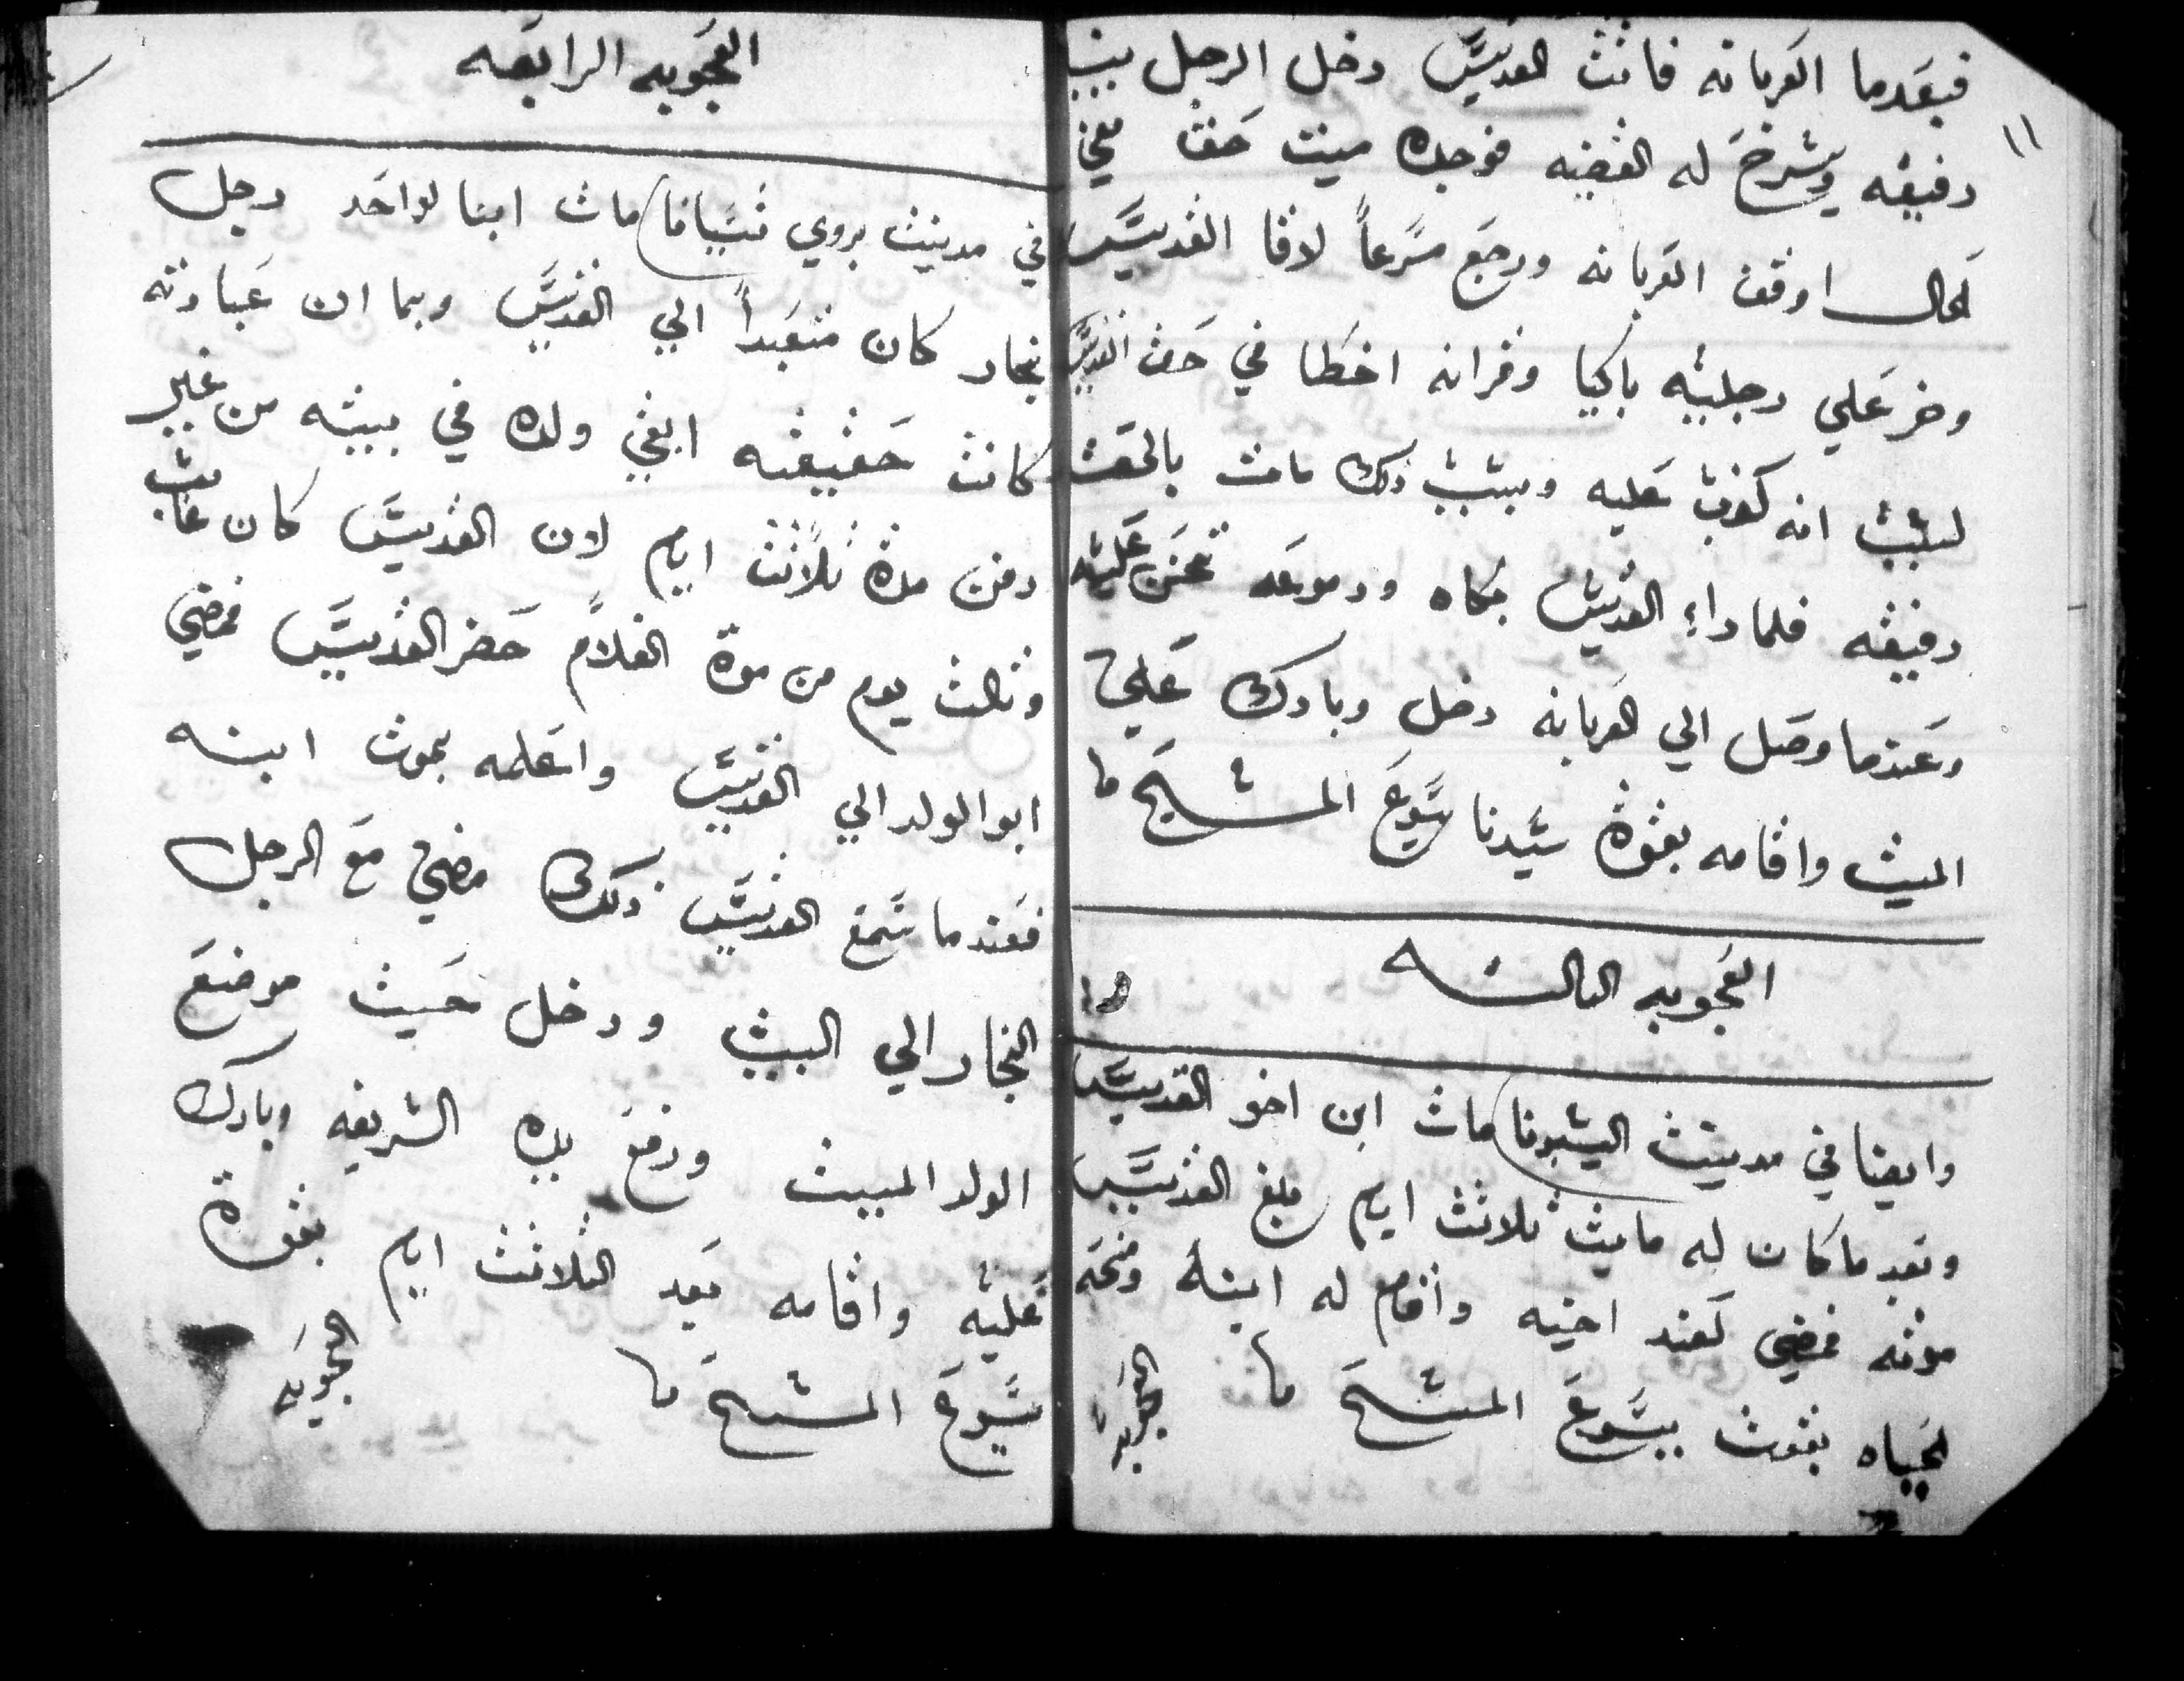 ١١
فبعدما العربانه فاتت القديس دخل الرجل ينبه
رفيقه ويشرح له القضيه فوجده ميت حقا ففي
الحال اوقف العربانه ورجع مسرعاً لاقا القديس
وخر علي رجليه باكيا وقر انه اخطا في حق القديس
لسبب انه كذب عليه وبسبب ذلك مات بالحق
رفيقه فلما راء القديس بكاه ودموعه تحنن عليه
وعندما وصل الي العربانه دخل وبارك علي
الميت واقامه بقوة سيدنا يسوع المسيح
العجوبه التالته
وايضا في مدينت اليشبونا مات ابن اخو القديس
وبعد ما كان له مايت تلاتت ايام بلغ القديس
موته فمضي لعند اخيه واقام له ابنه ومنحه
الحياه بقوت يسوع المسيح
العجوبه
العجوبه الرابعه
في مدينت بروي تسيافا مات ابنا لواحد رجل
نجار كان متعبداً الي القديس وبما ان عبادته
كانت حقيقيه ابقي ولده في بيته من غير
دفن مدة تلاتت ايام لان القديس كان غايب
وتالت يوم من موة الغلام حضر القديس فمضي
ابو الولد الي القديس واعلمه بموت ابنه
فعندما سمع القديس ذلك مضي مع الرجل
النجار الي البيت ودخل حيث موضع
الولد الميت ورفع يده الشريفه وبارك
عليه واقامه بعد التلاتت ايام بقوة
يسوع المسيح
العجوبه